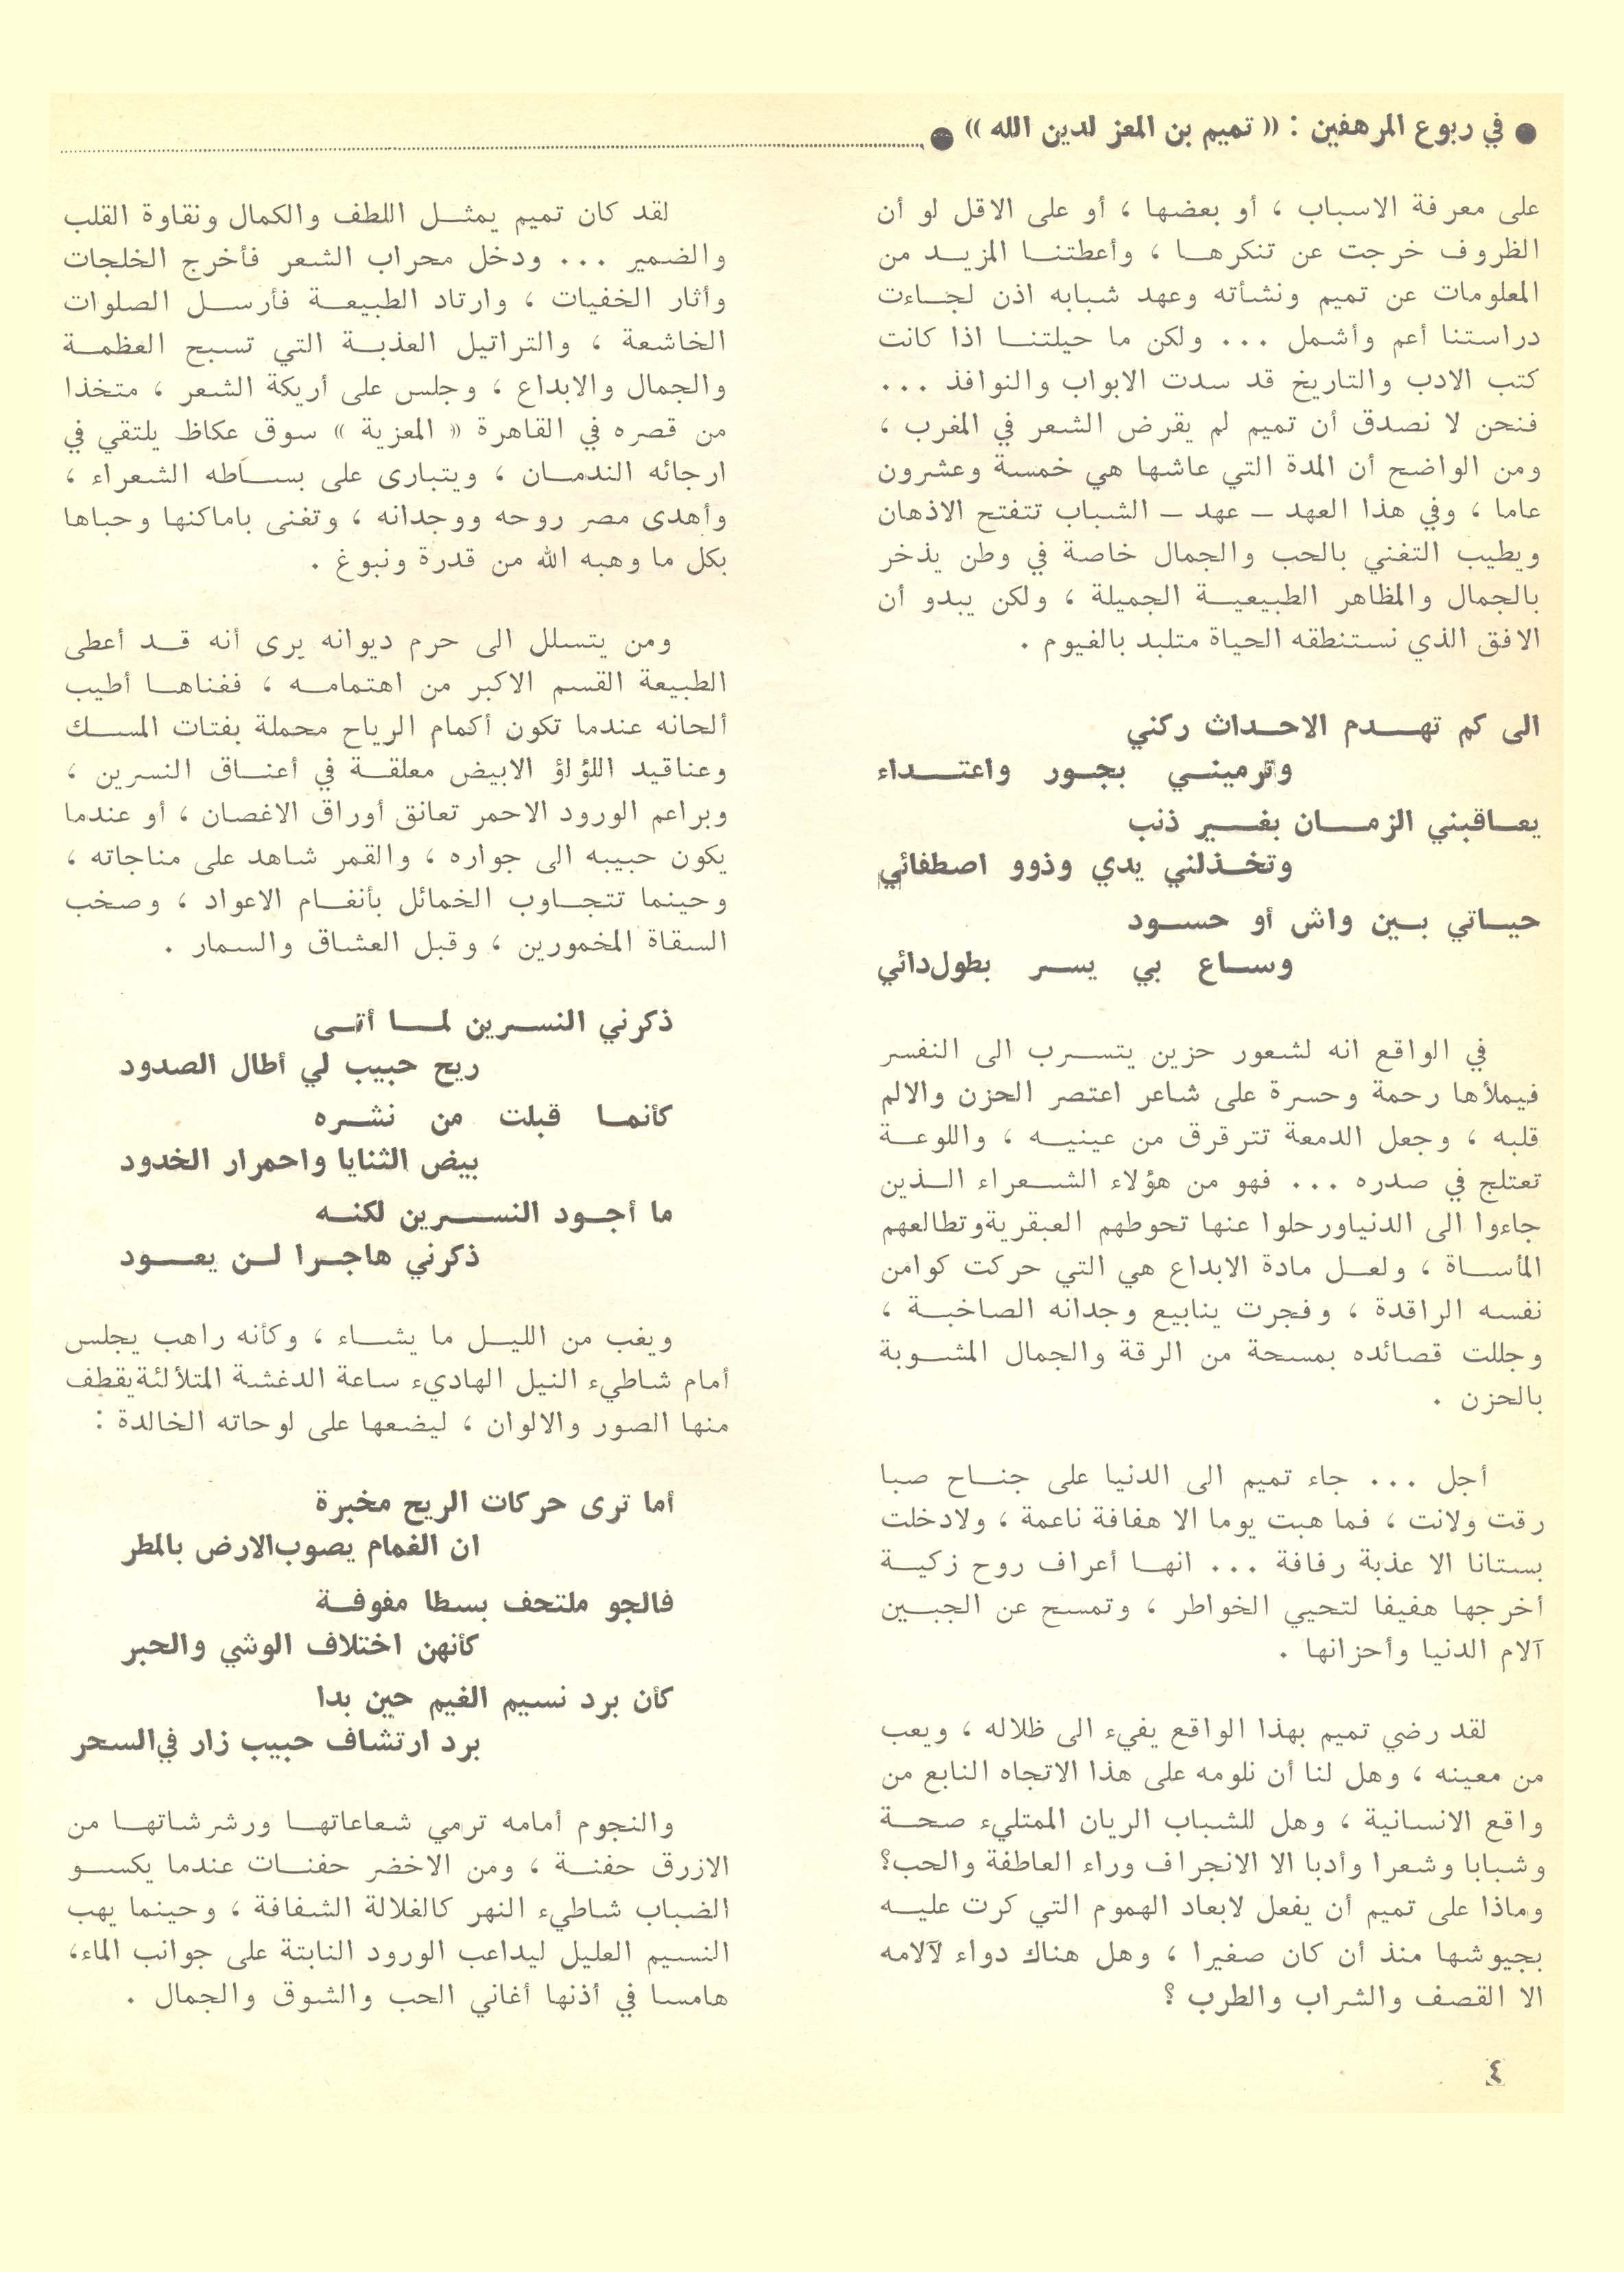 ● في ربوع المرهفين : « تميم بن المعز لدين الله » ●
على معرفة الاسباب ، أو بعضها ، أو على الاقل لو أن
الظروف خرجت عن تنكرها ، وأعطتنا المزيد من
المعلومات عن تميم ونشأته وعهد شبابه اذن لجاءت
دراستنا أعم وأشمل ... ولكن ما حيلتنا اذا كانت
كتب الادب والتاريخ قد سدت الابواب والنوافذ ...
فنحن لا نصدق أن تميم لم يقرض الشعر في المغرب ،
ومن الواضح أن المدة التي عاشها هي خمسة وعشرون
عاما ، وفي هذا العهد – عهد – الشباب تتفتح الاذهان
ويطيب التغني بالحب والجمال خاصة في وطن يذخر
بالجمال والمظاهر الطبيعية الجميلة ، ولكن يبدو أن
الافق الذي نستنطقه الحياة متلبد بالغيوم .
الى كم تهدم الاحداث ركني
وترميني بجور واعتداء
يعاقبني الزمان بغير ذنب
وتخذلني يدي وذوو اصطفائي
حياتي بين واش أو حسود
وساع بي يسر بطول دائي
في الواقع انه لشعور حزين يتسرب الى النفس
فيملأها رحمة وحسرة على شاعر اعتصر الحزن والالم
قلبه ، وجعل الدمعة تترقرق من عينيه ، واللوعة
تعتلج في صدره ... فهو من هؤلاء الشعراء الذين
جاءوا الى الدنيا ورحلوا عنها تحوطهم العبقرية وتطالعهم
المأساة ، ولعل مادة الابداع هي التي حركت كوامن
نفسه الراقدة ، وفجرت ينابيع وجدانه الصاخبة ،
وجللت قصائده بمسحة من الرقة والجمال المشوبة
بالحزن .
أجل ... جاء تميم الى الدنيا على جناح صبا
رقت ولانت ، فما هبت يوما الا هفافة ناعمة ، ولا دخلت
بستانا الا عذبة رفافة ... انها أعراف روح زكية
أخرجها هفيفا لتحيي الخواطر ، وتمسح عن الجبين
آلام الدنيا وأحزانها .
لقد رضي تميم بهذا الواقع يفيء الى ظلاله ، ويعب
من معينه ، وهل لنا أن نلومه على هذا الاتجاه النابع من
واقع الانسانية ، وهل للشباب الريان الممتليء صحة
وشبابا وشعرا وأدبا الا الانجراف وراء العاطفة والحب؟
وماذا على تميم أن يفعل لابعاد الهموم التي كرت عليه
بجيوشها منذ أن كان صغيرا ، وهل هناك دواء لآلامه
الا القصف والشراب والطرب ؟
لقد كان تميم يمثل اللطف والكمال ونقاوة القلب
والضمير ... ودخل محراب الشعر فأخرج الخلجات
وأثار الخفيات ، وارتاد الطبيعة فأرسل الصلوات
الخاشعة ، والتراتيل العذبة التي تسبح العظمة
والجمال والابداع ، وجلس على أريكة الشعر ، متخذا
من قصره في القاهرة « المعزية » سوق عكاظ يلتقي في
ارجائه الندمان ، ويتبارى على بساطه الشعراء ،
وأهدى مصر روحه ووجدانه ، وتغنى باماكنها وحباها
بكل ما وهبه الله من قدرة ونبوغ .
ومن يتسلل الى حرم ديوانه يرى أنه قد أعطى
الطبيعة القسم الاكبر من اهتمامه ، فغناها أطيب
ألحانه عندما تكون أكمام الرياح محملة بفتات المسك
وعناقيد اللؤلؤ الابيض معلقة في أعناق النسرين ،
وبراعم الورود الاحمر تعانق أوراق الاغصان ، أو عندما
يكون حبيبه الى جواره ، والقمر شاهد على مناجاته ،
وحينما تتجاوب الخمائل بأنغام الاعواد ، وصخب
السقاة المخمورين ، وقبل العشاق والسمار .
ذكرني النسرين لما أتى
ريح حبيب لي أطال الصدود
كأنما قبلت من نشره
بيض الثنايا واحمرار الخدود
ما أجود النسرين لكنه
ذكرني هاجرا لن يعود
ويغب من الليل ما يشاء ، وكأنه راهب يجلس
أمام شاطيء النيل الهاديء ساعة الدغشة المتلألئة يقطف
منها الصور والالوان ، ليضعها على لوحاته الخالدة :
أما ترى حركات الريح مخبرة
ان الغمام يصوب الارض بالمطر
فالجو ملتحف بسطا مفوفة
كأنهن اختلاف الوشي والحبر
كأن برد نسيم الغيم حين بدا
برد ارتشاف حبيب زار في السحر
والنجوم أمامه ترمي شعاعاتها ورشرشاتها من
الازرق حفنة ، ومن الاخضر حفنات عندما يكسو
الضباب شاطيء النهر كالغلالة الشفافة ، وحينما يهب
النسيم العليل ليداعب الورود النابتة على جوانب الماء،
هامسا في أذنها أغاني الحب والشوق والجمال .
٤